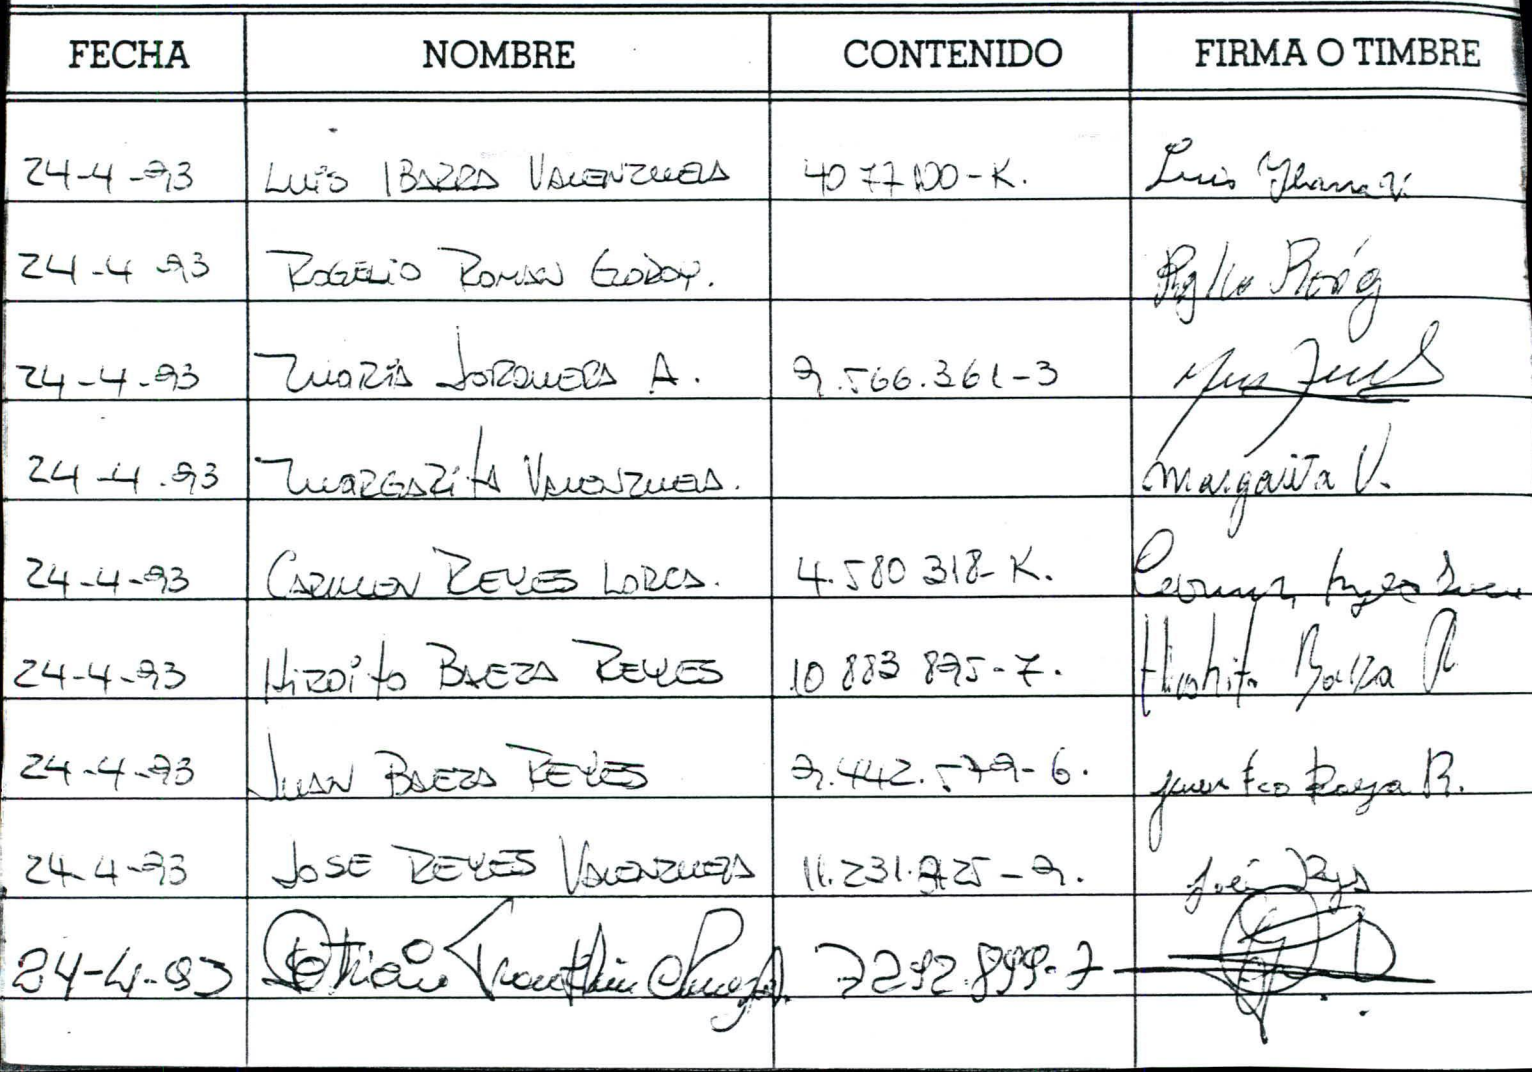 FECHA NOMBRE CONTENIDO FIRMA O TIMBRE
24-4-93 LUIS IBARRA VALENZUELA 4077100-K. Luis Ybarra V.
24-4-93 ROGELIO ROMAN GODOY.
24-4-93 MARIA JORQUERA A. 9.566.361-3
24-4-93 MARGARITA VALENZUELA. Margarita V.
24-4-93 CARMEN REYES LORCA. 4.580 318-K. Carmen
24-4-93 HIROITO BAEZA REYES 10 883 895-7. Hirohito Baeza R
24-4-93 JUAN BAEZA REYES 9.442.579-6. Juan Fco Baeza R.
24-4-93 JOSE REYES VALENZUELA 11.231.925-9. José Rys
24-4-93 7292.899-7